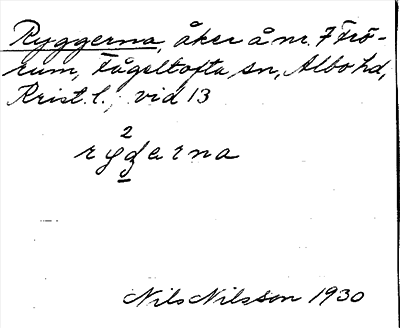 Ryggerna, åker å nr. 7 Frö-
rum, Fågeltofta sn, Albo hd,
Krist. l., vid 13
2
ryg̱erna
Nils Nilsson 1930